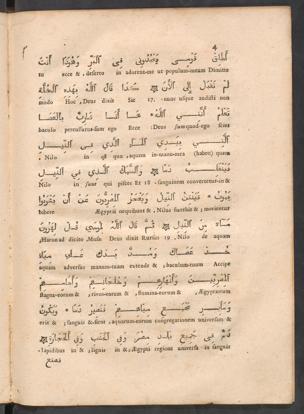 4
قومي في البر وهوذا أنت
tu ecce & ,deserto in adorent-me ut populum-meum Dimitte
لم تقبل إلى الآن ۞ كذا قال الله بهذه الخلة
modo Hoc ,Deus dixit Sic 17. -nunc usque audisti non
تعلم أنني الله ها أنا ضارب بالعصا
baculo percussurus-sum ego Ecce :Deus sum quod-ego scies
التي بيدي الماء الذي في النيل
Nilo in est qua ,aquam in-manu-mea (habeo) quem
فينقلب دما ۞ والسمك الذي في النيل
Nilo in sunt qui pisces Et 18 .sanguinem convertetur-in &
يموت فينتن النيل ويعجز المصريون عن أن يشربوا
bibere Ægyptii nequibunt & , Nilus fœtebit & ; morietur
ماء من النيل ۞ ثم قال الله لموسى قل لهرون
,Haron ad dicito Mosi Deus dixit Rursus 19 .Nilo de aquam
خذ عصاك ومد يدك على مياه
aquas adversus manum-tuam extende & ,baculum-tuum Accipe
المصريين وأنهارهم وخلجانهم وآجامهم
stagna-eorum & ,rivos-eorum & ,flumina-eorum & ,Ægyptiorum
وسائر مجمع مياههم تصير دما ويكون
erit & ;sanguis &-fient ,aquarum-eorum congregationem universam &
دم في جميع بلد مصر وفي الخشب وفي الحجارة ۞
.lapidibus in & ,lignis in & ,Ægypti regione universa in sanguis
فصنع